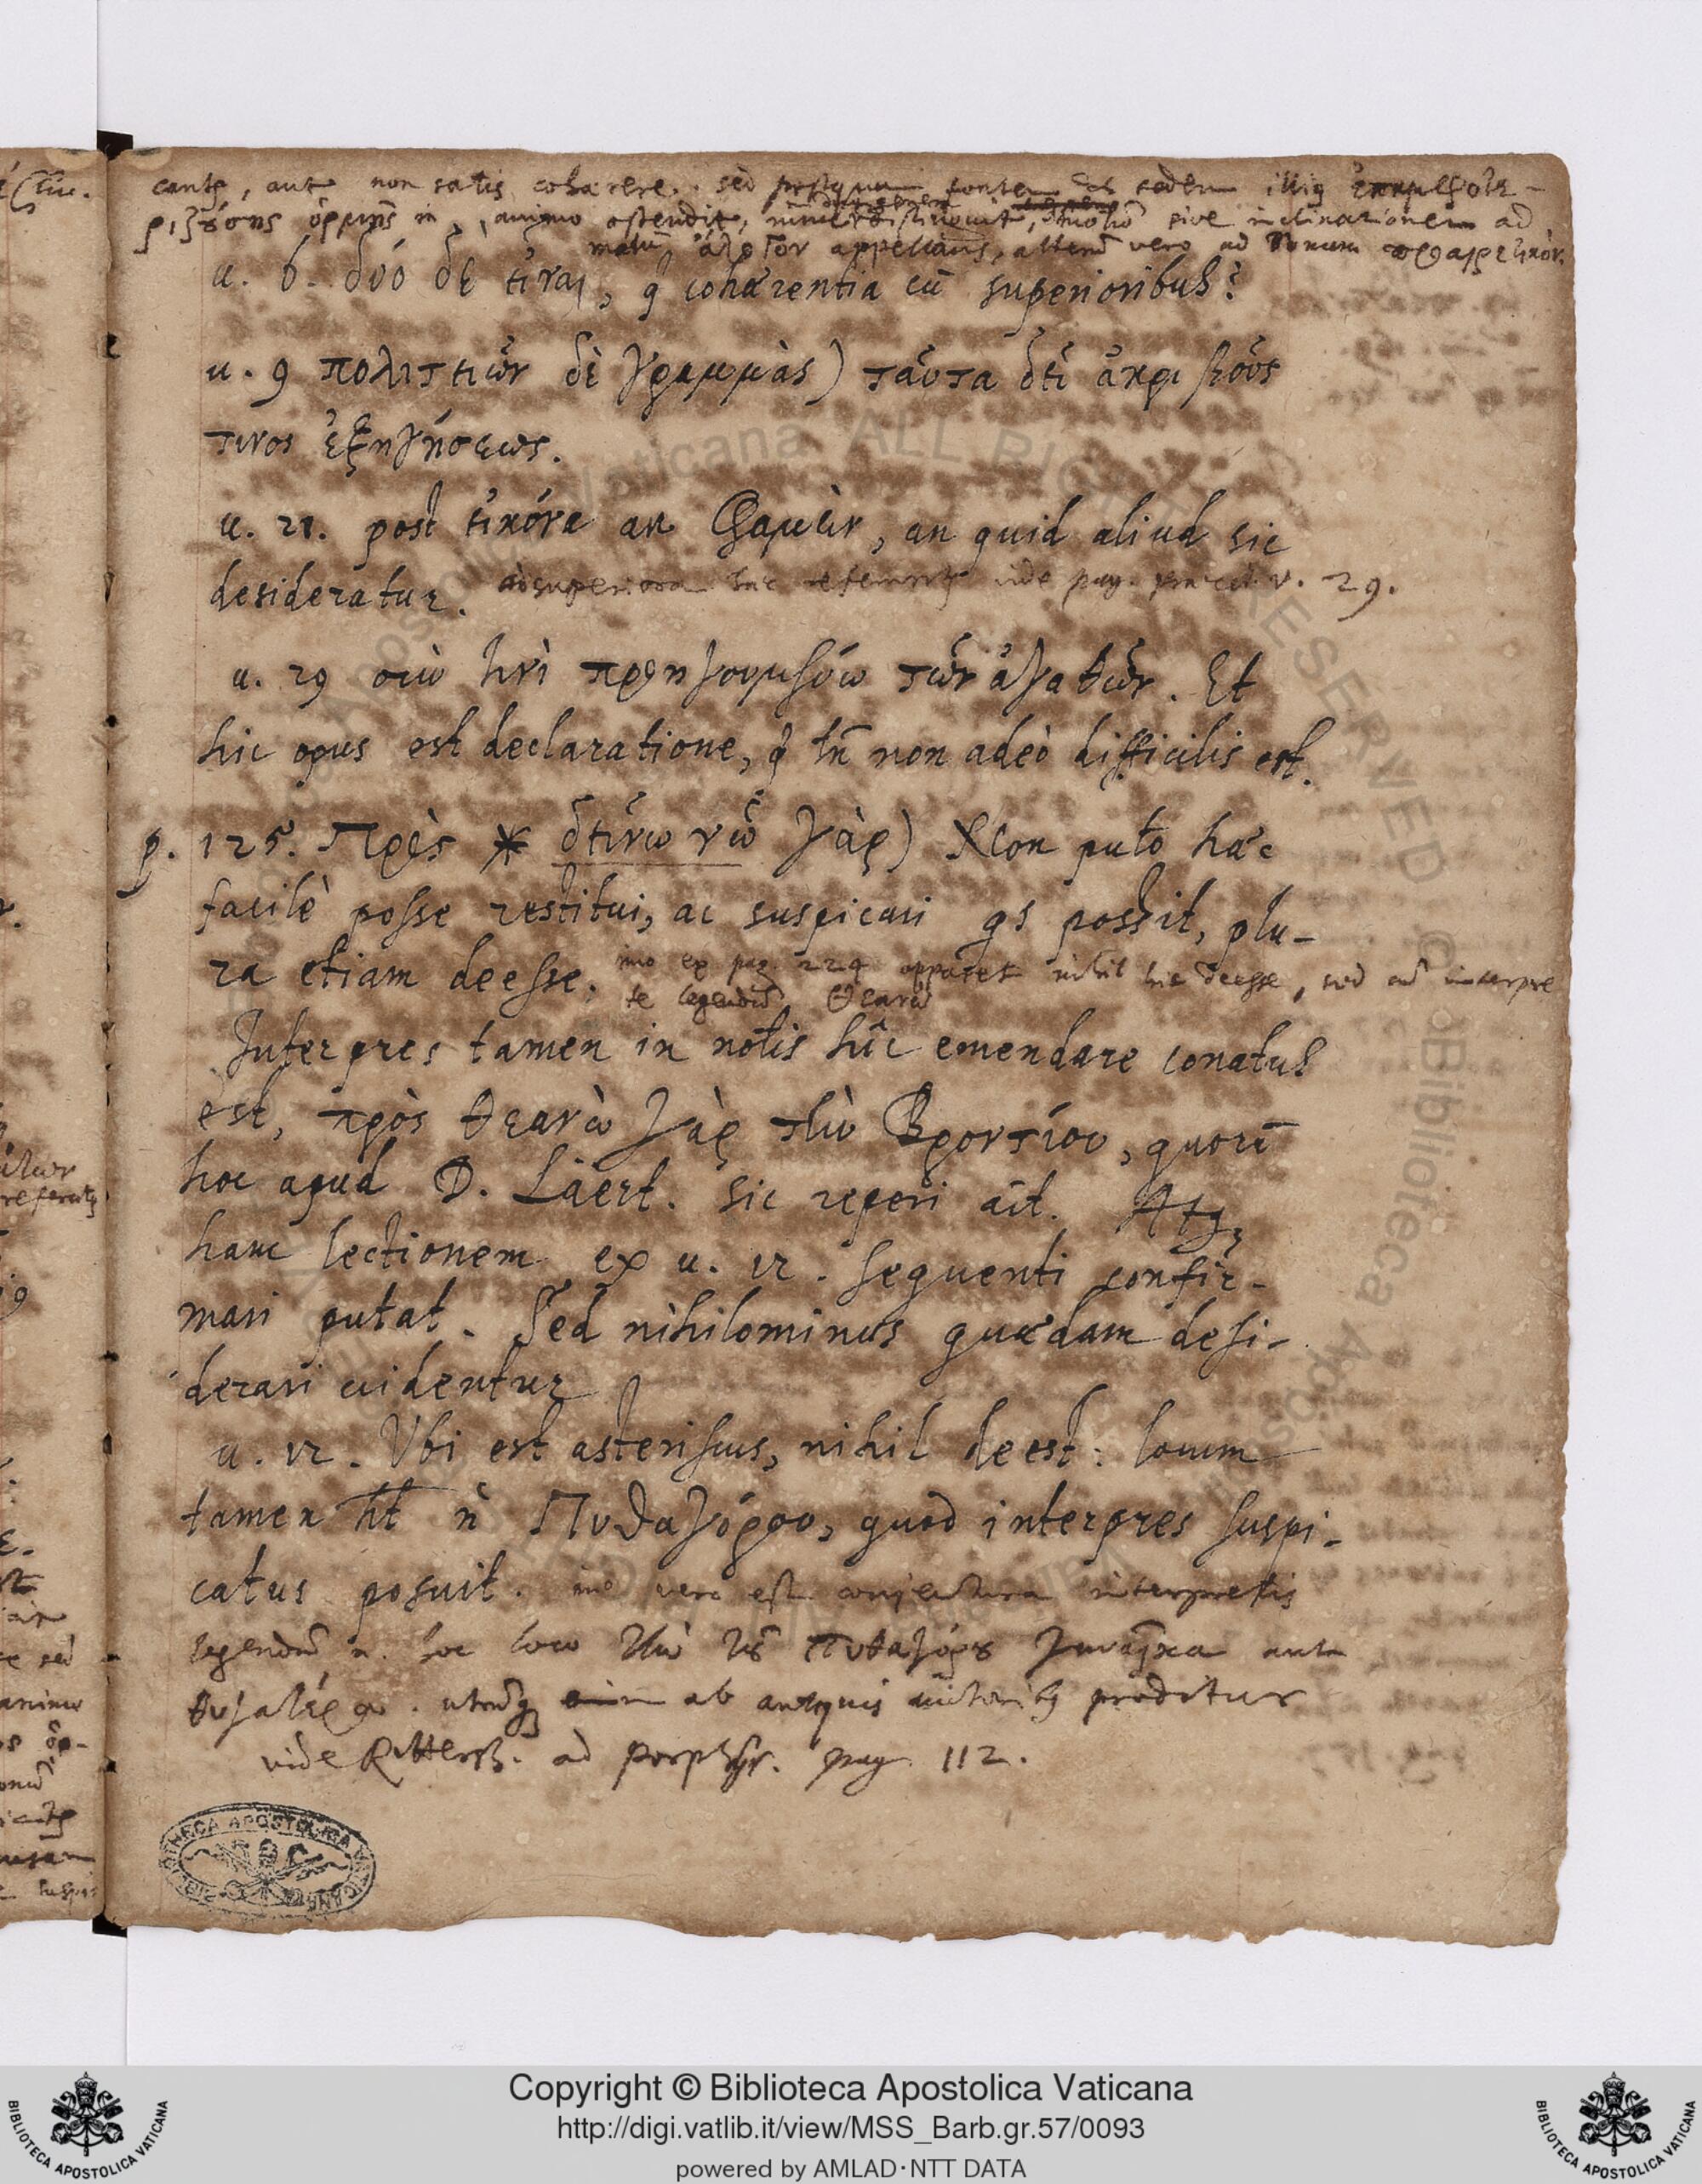 cantę, aut non satis cohærere. sed postquam fontem et sedem illiq
ριζούσης ὁρμῆς in animo ostendit, motiõ sive inclinationem ad
malũ ἄλογον appellans, alterã vero ad bonum προαιρετικόν.
u. 6. δύο δὲ εἶναι, q cohærentia cũ superioribus?
u. 9 πολιτειῶν δὲ γραμμὰς) ταῦτα δεῖ ἀκριβοῦς
τινος ἐξηγήσεως.
u. 21. post εἰκόνα an γραμμὴν, an quid aliud sic
desideratur. ad superiora hæc referunt vide pag. præced. v. 29.
u. 29 σὺν τινὶ προηγουμένῳ τῶν ἀγαθῶν. Et
hic opus est declaratione, q tñ non adeò difficilis est.
p. 125. Πρὸς * δεινὼ νῶ γὰρ) Non puto hæc
facilè posse restitui, ac suspicari qs possit, plu-
ra etiam deesse. imo ex pag. 224 apparet nihil hic deesse, sed cũ interpre
te legendũ Θεανὼ
Interpres tamen in notis hũc emendare conatus
est, πρὸς Θεανὼ γὰρ τὴν Βροντίου, quorũ
hoc apud D. Läert. sic reperi ait. Atq;
hanc lectionem ex u. 12. sequenti confir-
mari putat. Sed nihilominus quædam desi-
derari uidentur
u. 12. Vbi est asteriscus, nihil deest: locum
tamen ht ἢ Πυθαγόρου, quod interpres suspi-
catus posuit. imò vera est conjectura interpretis
legendũ n. hoc loco τὴν τοῦ Πυθαγόρου γυναῖκα aut
θυγατέρα. utrũq; ab antiquis auctorib; proditur
vide Rittersh. ad Porphyr. pag. 112.
BIBLIOTHECA APOSTOLICA VATICANA
Copyright © Biblioteca Apostolica Vaticana
http://digi.vatlib.it/view/MSS_Barb.gr.57/0093
powered by AMLAD·NTT DATA